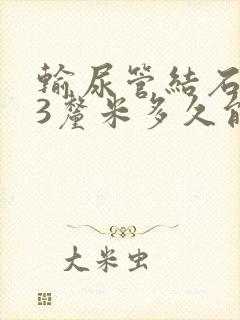 輸尿管結石
3釐米多久
大米虫